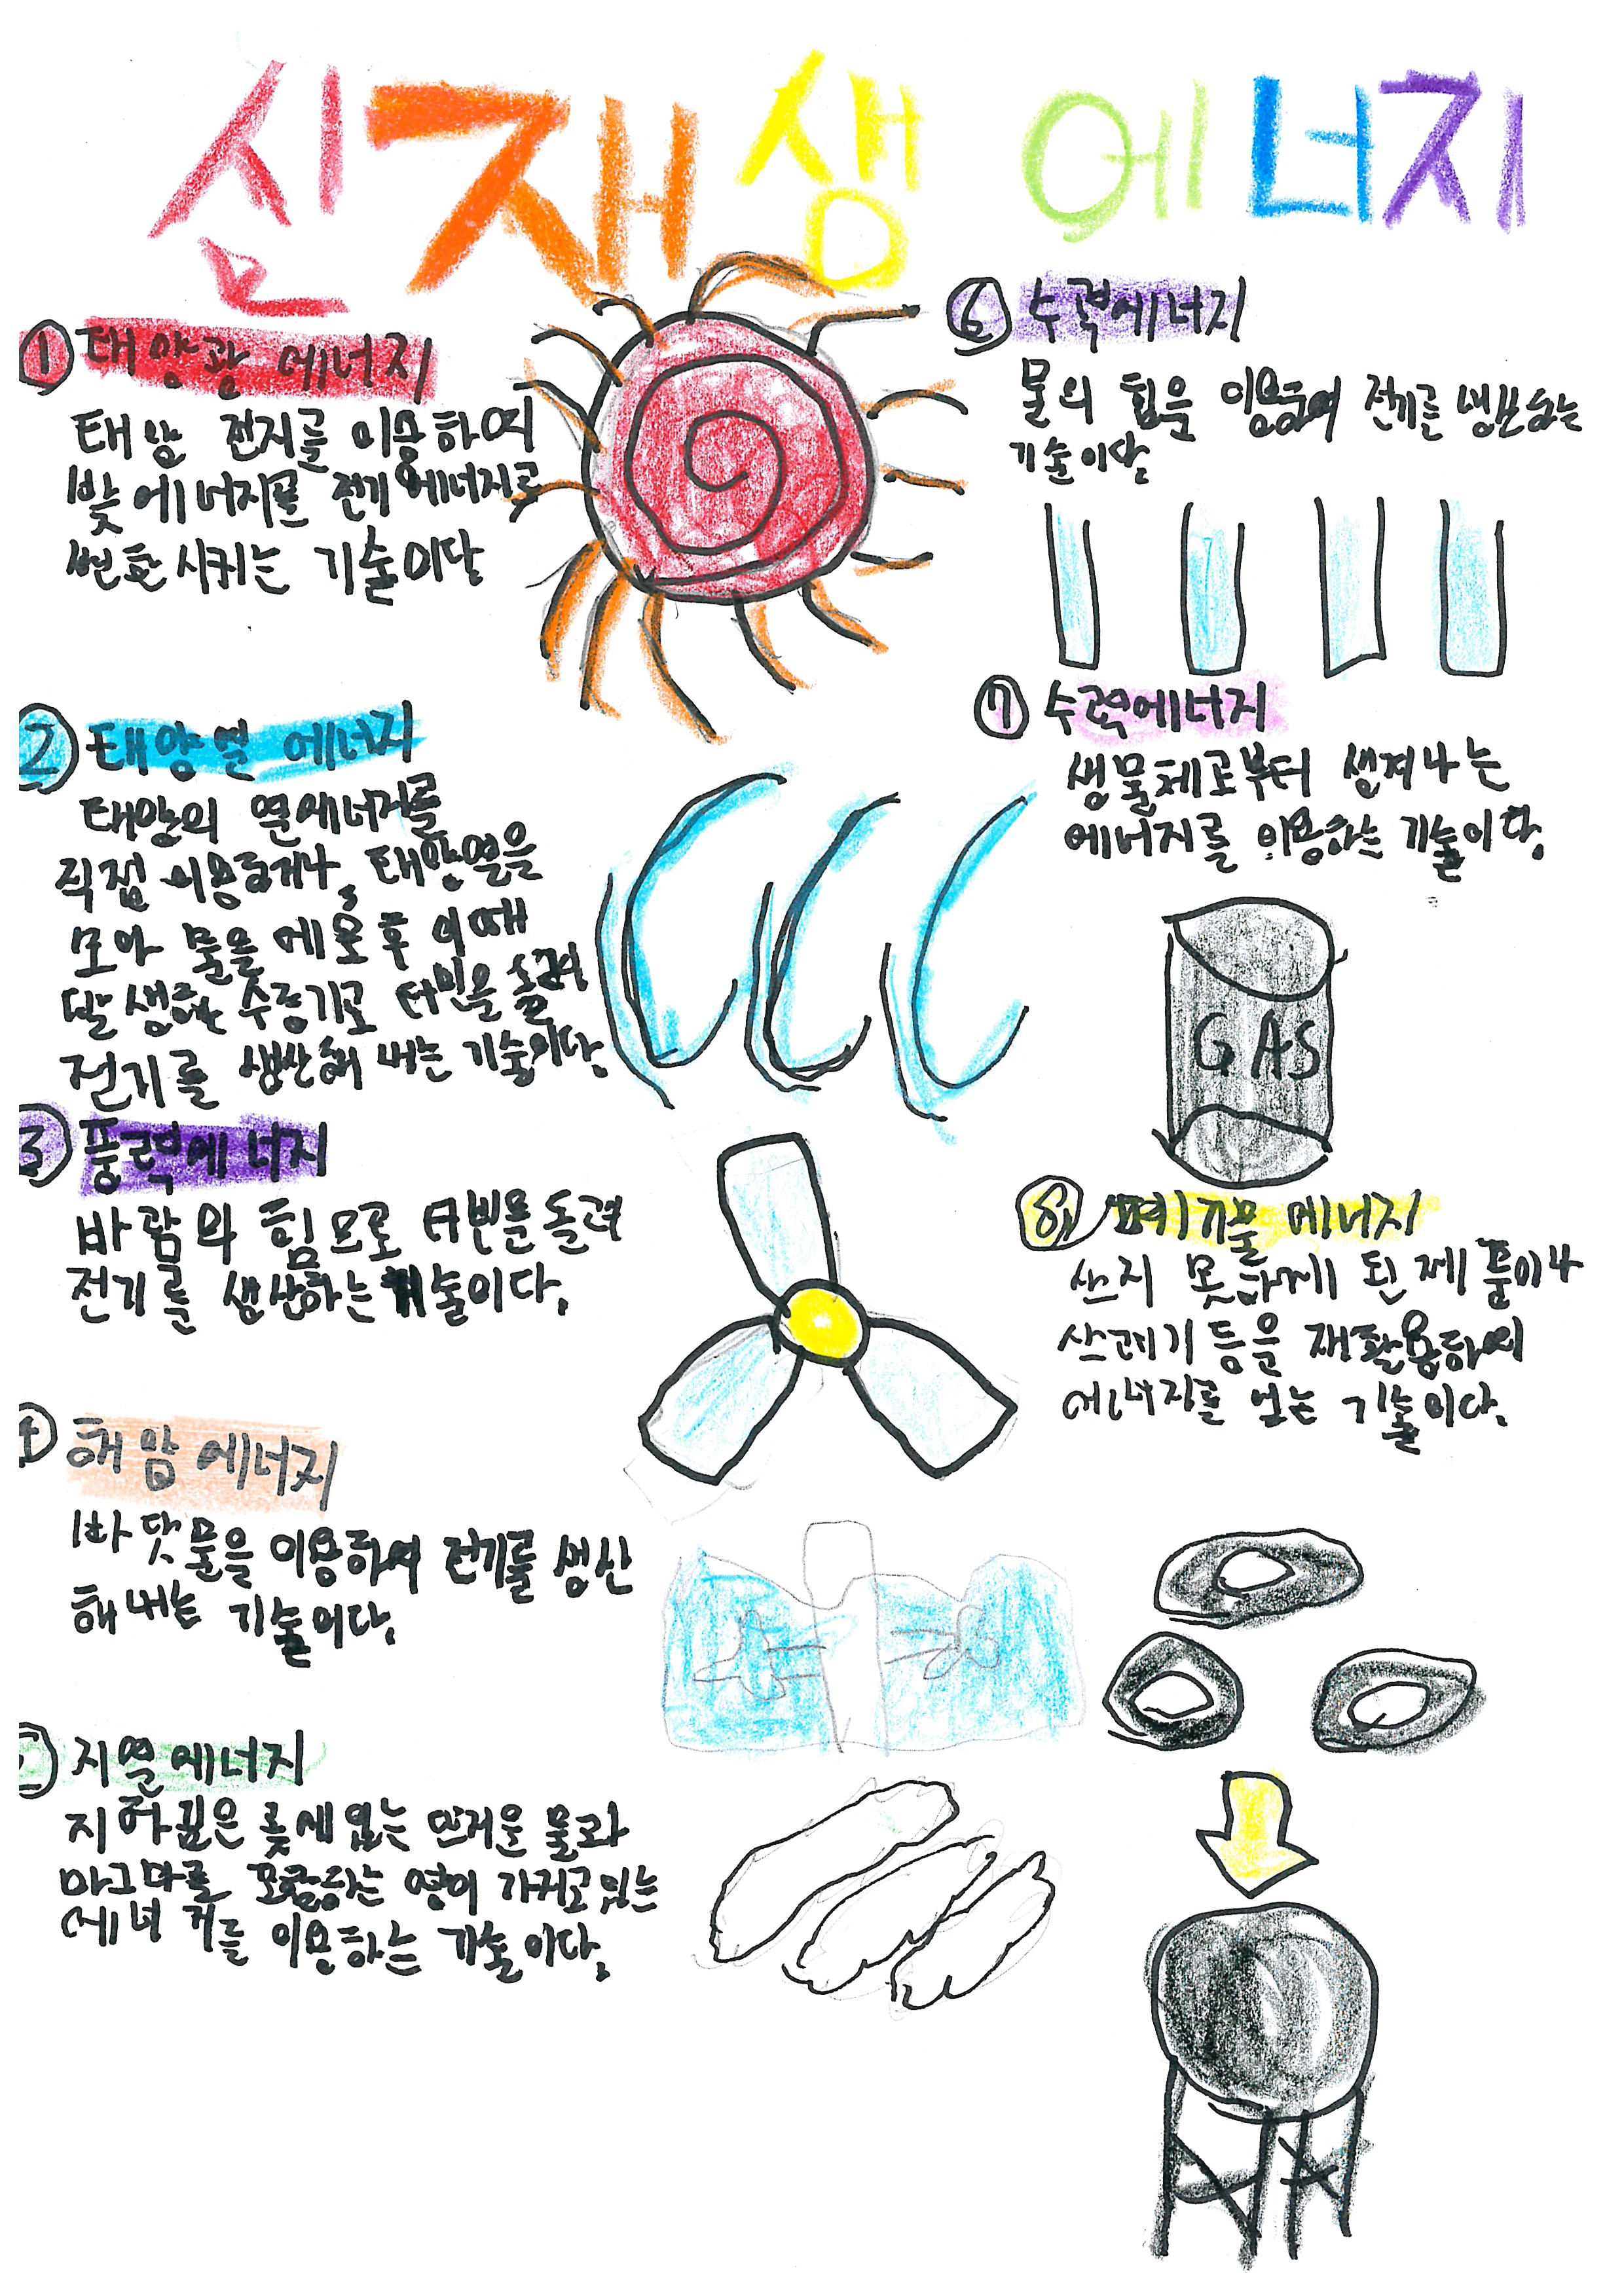 신재생 에너지
① 태양광 에너지
태양 전지를 이용하여
빛에너지를 전기에너지로
변환시키는 기술이다
② 태양열 에너지
태양의 열에너지를
직접 이용하거나, 태양열을
모아 물을 데운 후 이때
발생한 수증기로 터빈을 돌려
전기를 생산해 내는 기술이다.
③ 풍력에너지
바람의 힘으로 터빈을 돌려
전기를 생산하는 기술이다.
④ 해양에너지
바닷물을 이용하여 전기를 생산
해내는 기술이다.
지열에너지
지하 깊은 곳에 있는 뜨거운 물과
마그마를 포함하는 땅이 가지고 있는
에너지를 이용하는 기술이다.
⑥ 수력에너지
물의 힘을 이용하여 전기를 생산하는
기술이다
⑦ 수력에너지
생물체로부터 생겨나는
에너지를 이용하는 기술이다.
GAS
⑧ 폐기물 에너지
쓰지 못하게 된 제품이나
쓰레기 등을 재활용하여
에너지를 얻는 기술이다.